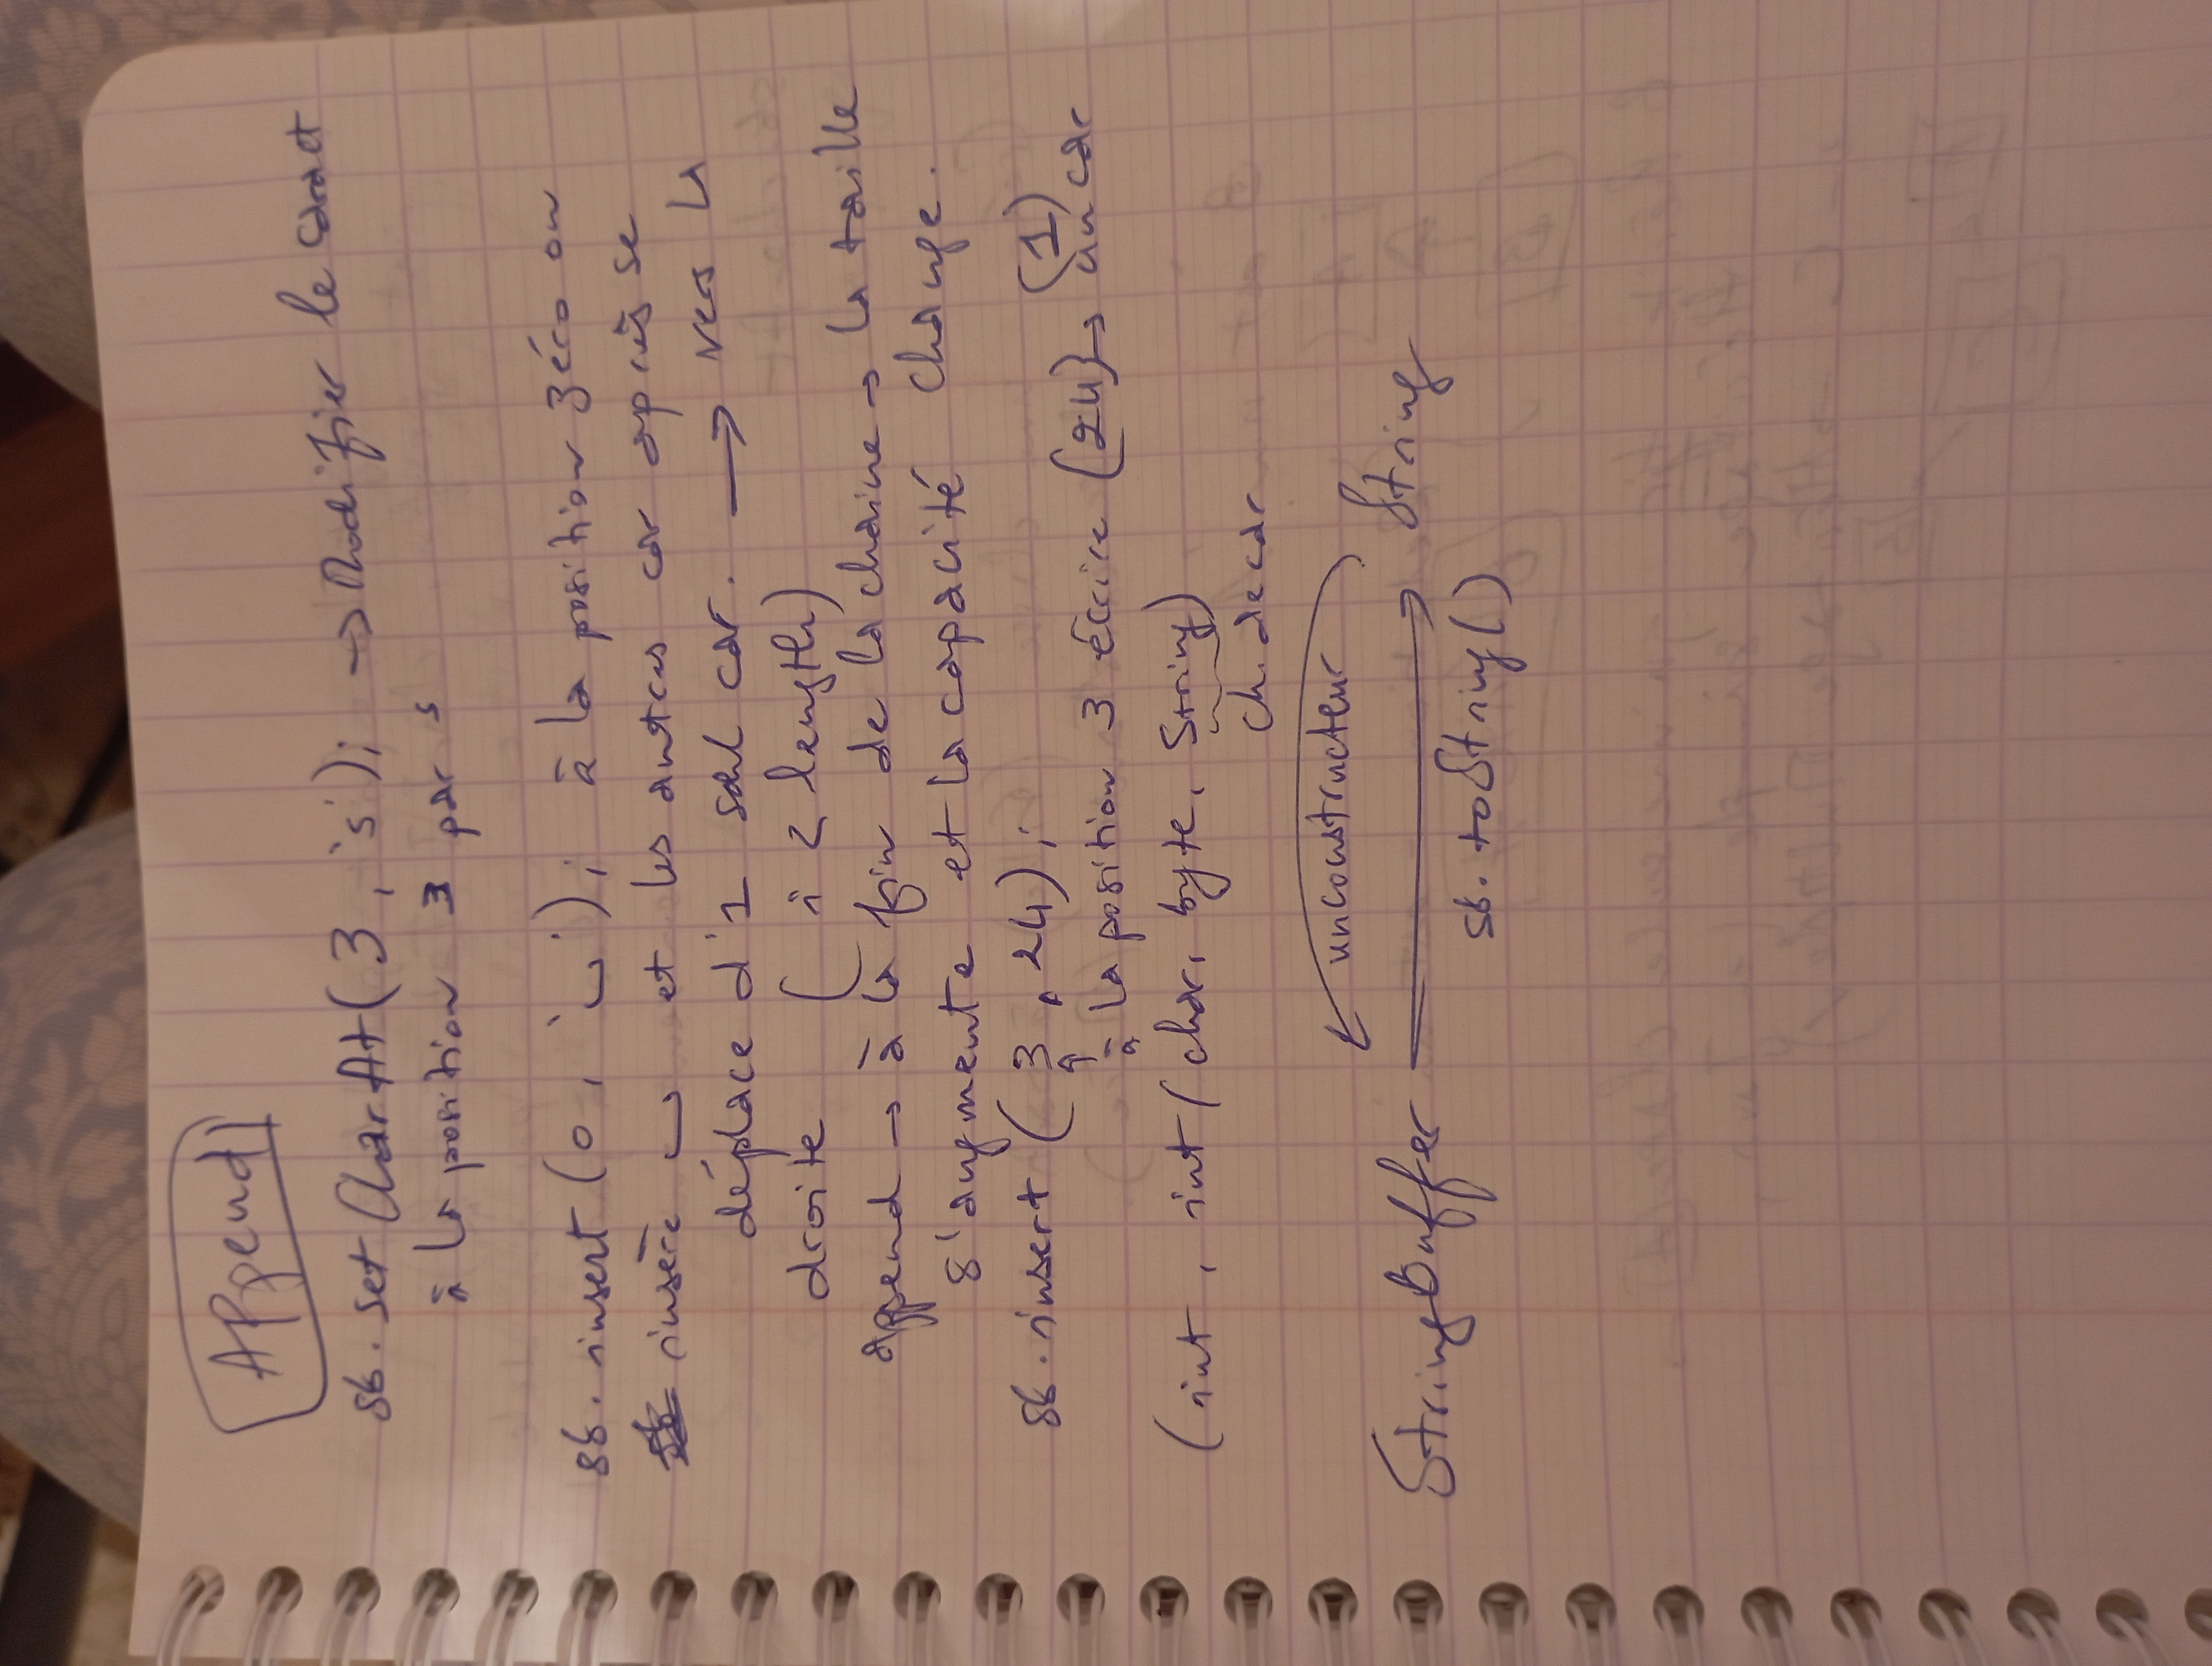 Append
sb. set CharAt( 3 , 's' ); → Modifier le caract
à la position 3 par s
sb. insert ( 0 , '␣' ); à la position zéro on
insère ␣ et les autres car après se
déplace d'1 seul car. → vers la
droite ( i < length)
append → à la fin de la chaine → la taille
s'augmente et la capacité change.
sb. insert ( 3 , 24 );
(1)
↑
à la position 3 écrire (24) → un car
(int , int / char, byte, String)
ch. de car
un constructeur
StringBuffer → String
sb. toString()